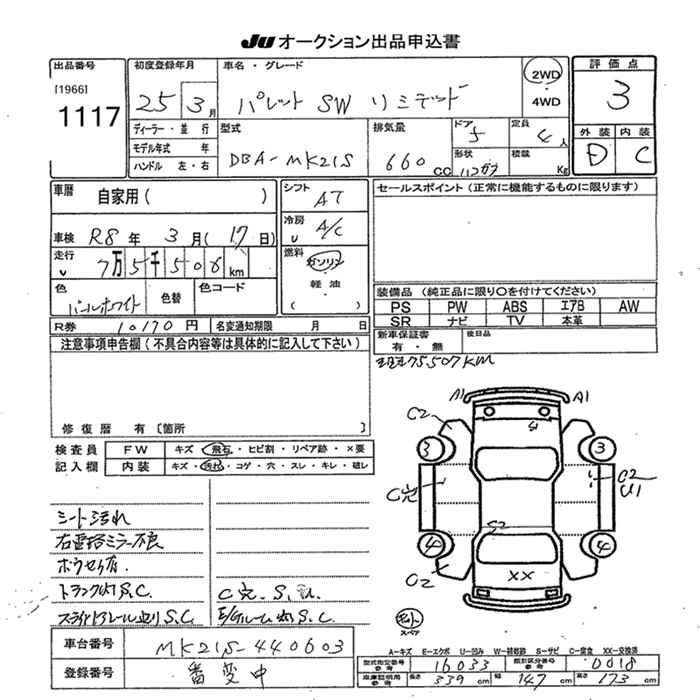 JU オークション出品申込書
出品番号
[1966]
1117
初度登録年月
25 3月
車名・グレード
パレット SW リミテッド
2WD
・
4WD
評価点
3
外装 内装
D C
ディーラー・並行
モデル年式 年
ハンドル 左・右
型式
DBA-MK21S
排気量
660 cc
ドア
5
形状
ハコガタ
定員
4人
積載
Kg
車歴
自家用( )
車検 R8年 3月(17日)
走行
7万5千506km
色
パールホワイト
色替
色コード
シフト
AT
冷房
A/C
燃料
ガソリン
・
軽油
・
( )
セールスポイント(正常に機能するものに限ります)
装備品 (純正品に限り〇を付けてください)
PS PW ABS エアB AW
SR ナビ TV 本革
R券 10170円
名変通知期限 月 日
新車保証書
有・無
後日品
注意事項申告欄(不具合内容等は具体的に記入して下さい)
75,507KM
修復歴 有〔箇所 〕
検査員
記入欄
FW キズ・飛石・ヒビ割・リペア跡・×要
内装 キズ・汚れ・コゲ・穴・スレ・キレ・破レ
シート汚れ
右電格ミラー不良
ボウセイ有.
トランク内 S.C.
スライドドアレール廻り S.C.
C穴. S.
E/Gルーム内 S.C.
A1 A1
C2
3 3
C穴
C2
U1
S2
4 4
C2
XX
スペア
A-キズ E-エクボ U-凹み W-補修跡 S-サビ C-腐食 XX-交換済
車台番号 MK21S-440603
登録番号 番変中
型式指定番号
参考
16033
類別区分番号
参考
0018
車庫証明用
参考
長さ 339cm 幅 147cm 高さ 173cm